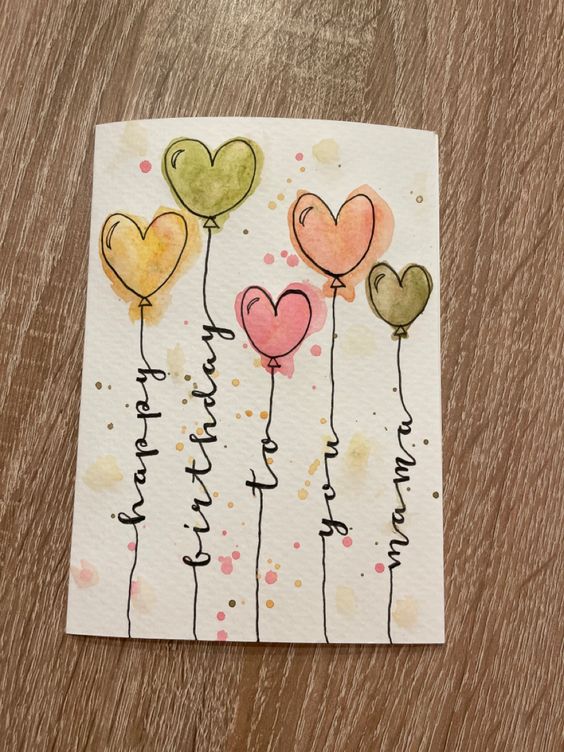 happy
birthday
to
you
mama